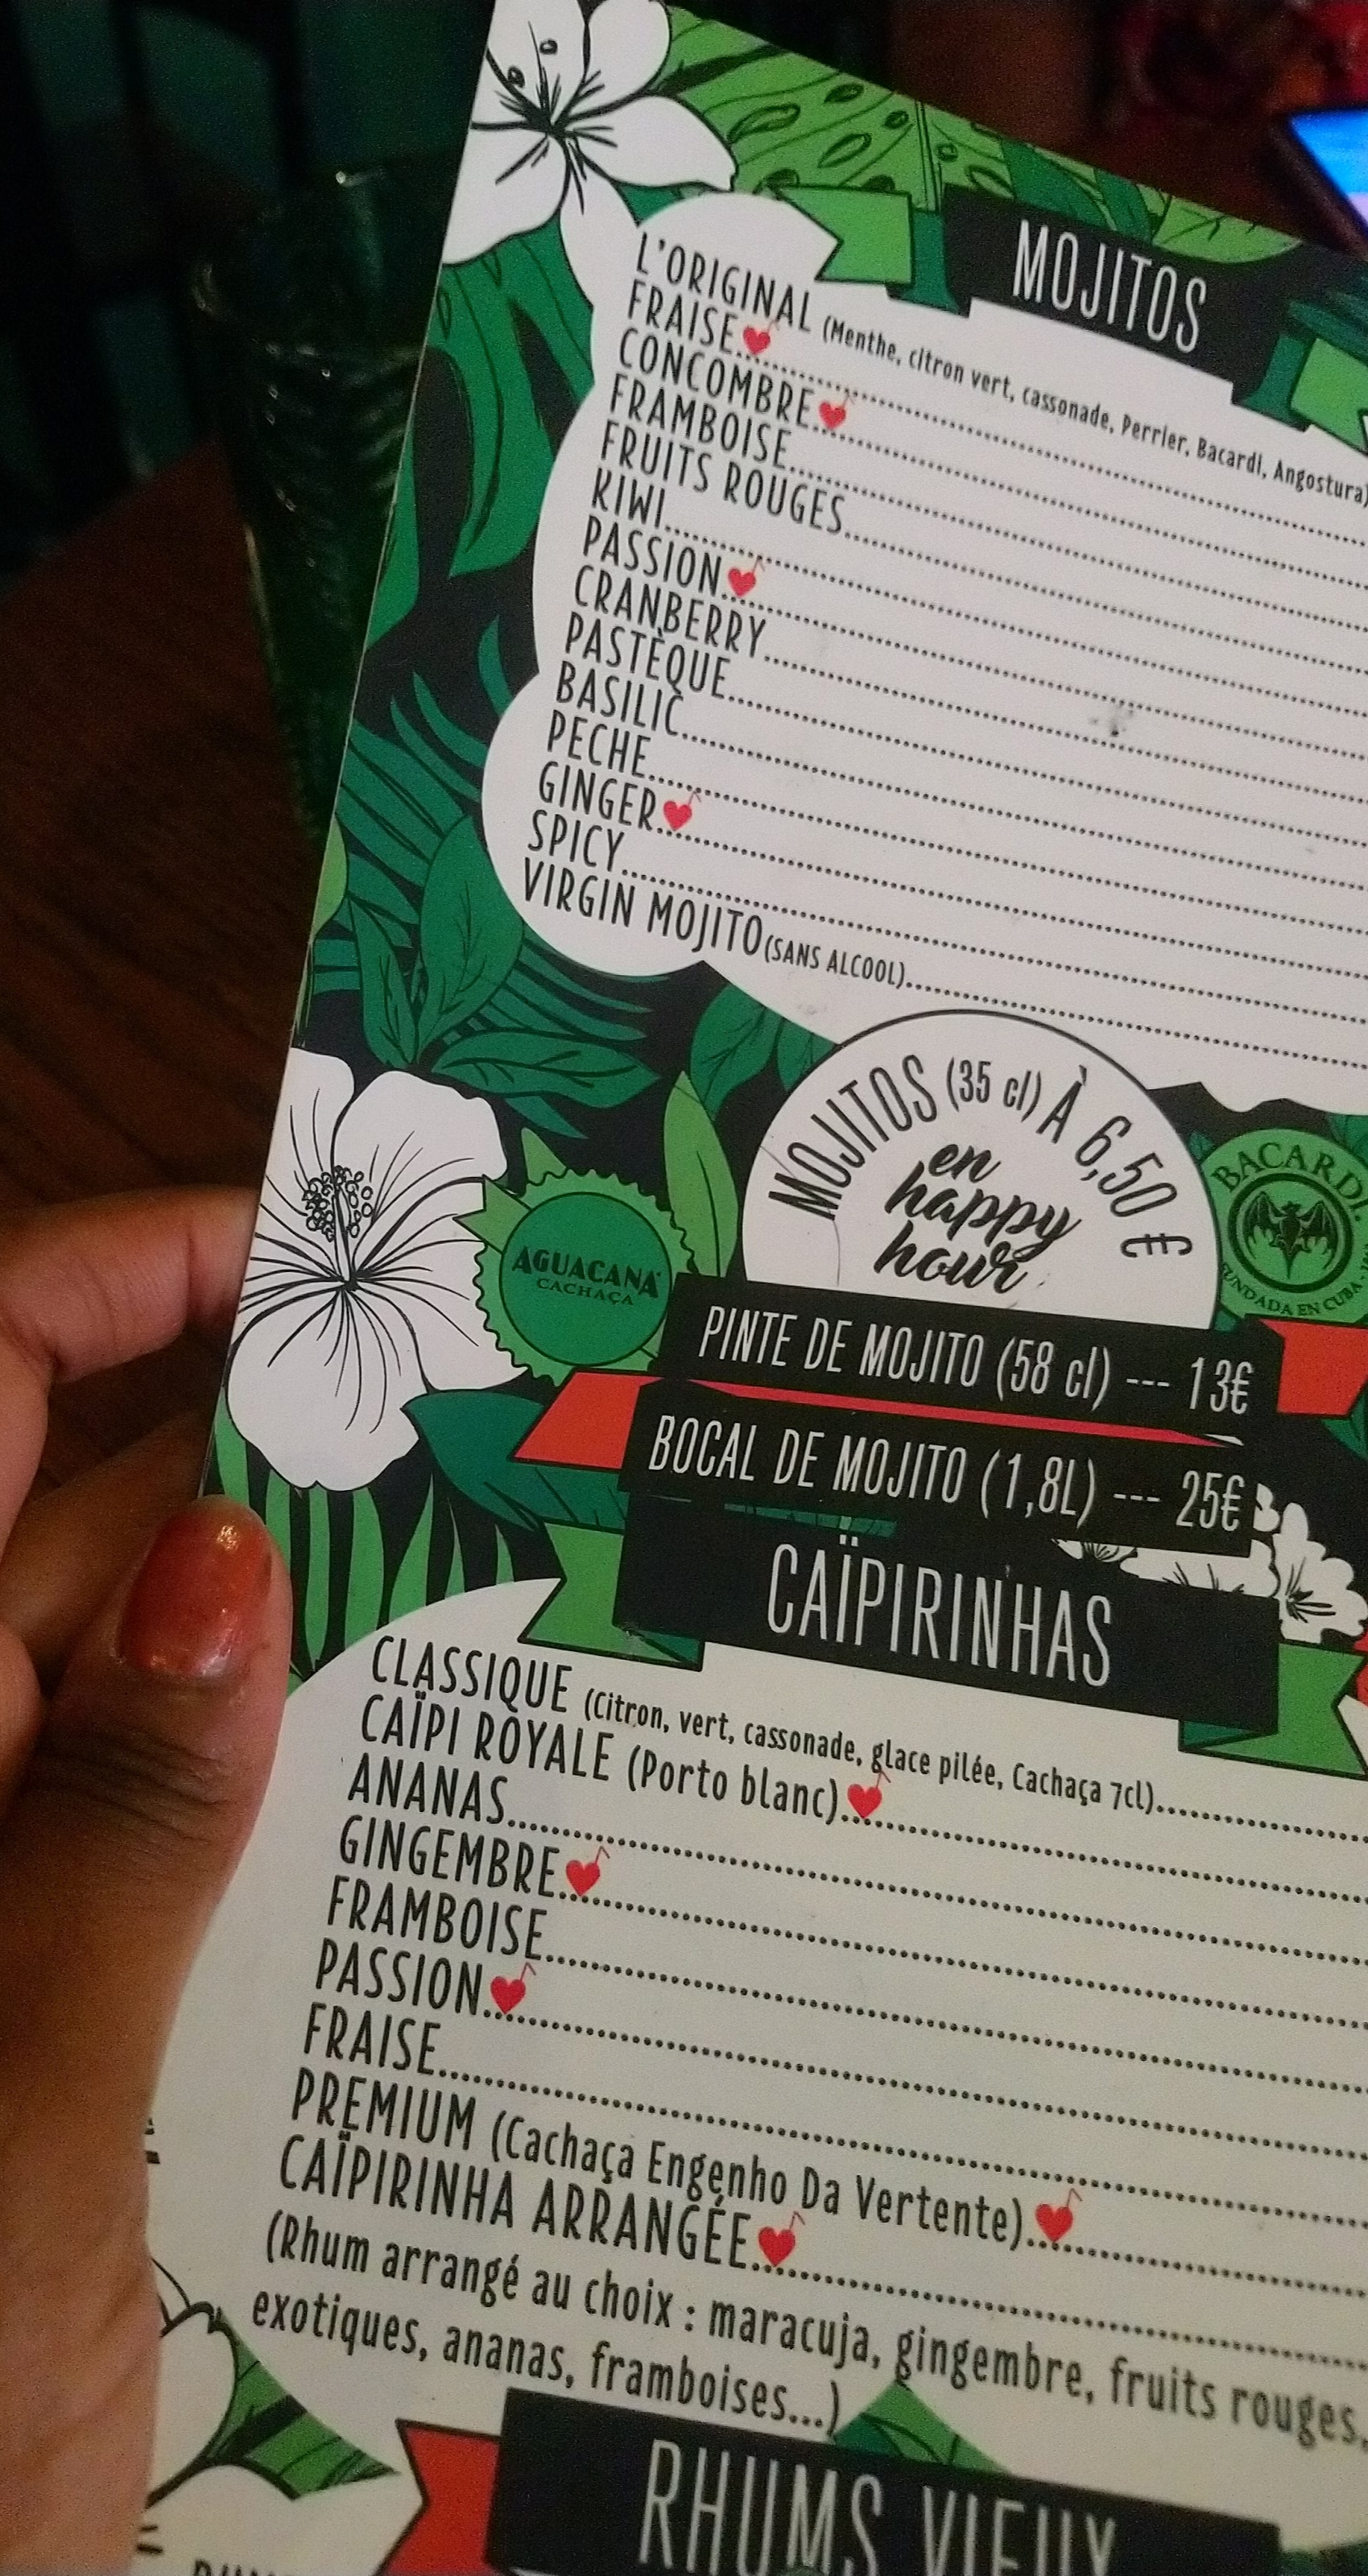 MOJITOS
L'ORIGINAL (Menthe, citron vert, cassonade, Perrier, Bacardi, Angostura)
FRAISE
CONCOMBRE
FRAMBOISE
FRUITS ROUGES
KIWI
PASSION
CRANBERRY
PASTÈQUE
BASILIC
PECHE
GINGER
SPICY
VIRGIN MOJITO (SANS ALCOOL)
MOJITOS (35 cl) À 6,50 €
en
happy
hour
AGUACANA
CACHAÇA
BACARDI
FUNDADA EN CUBA
PINTE DE MOJITO (58 cl) --- 13€
BOCAL DE MOJITO (1,8L) --- 25€
CAÏPIRINHAS
CLASSIQUE (Citron, vert, cassonade, glace pilée, Cachaça 7cl)
CAÏPI ROYALE (Porto blanc)
ANANAS
GINGEMBRE
FRAMBOISE
PASSION
FRAISE
PREMIUM (Cachaça Engenho Da Vertente)
CAÏPIRINHA ARRANGÉE
(Rhum arrangé au choix : maracuja, gingembre, fruits rouges,
exotiques, ananas, framboises...)
RHUMS VIEUX